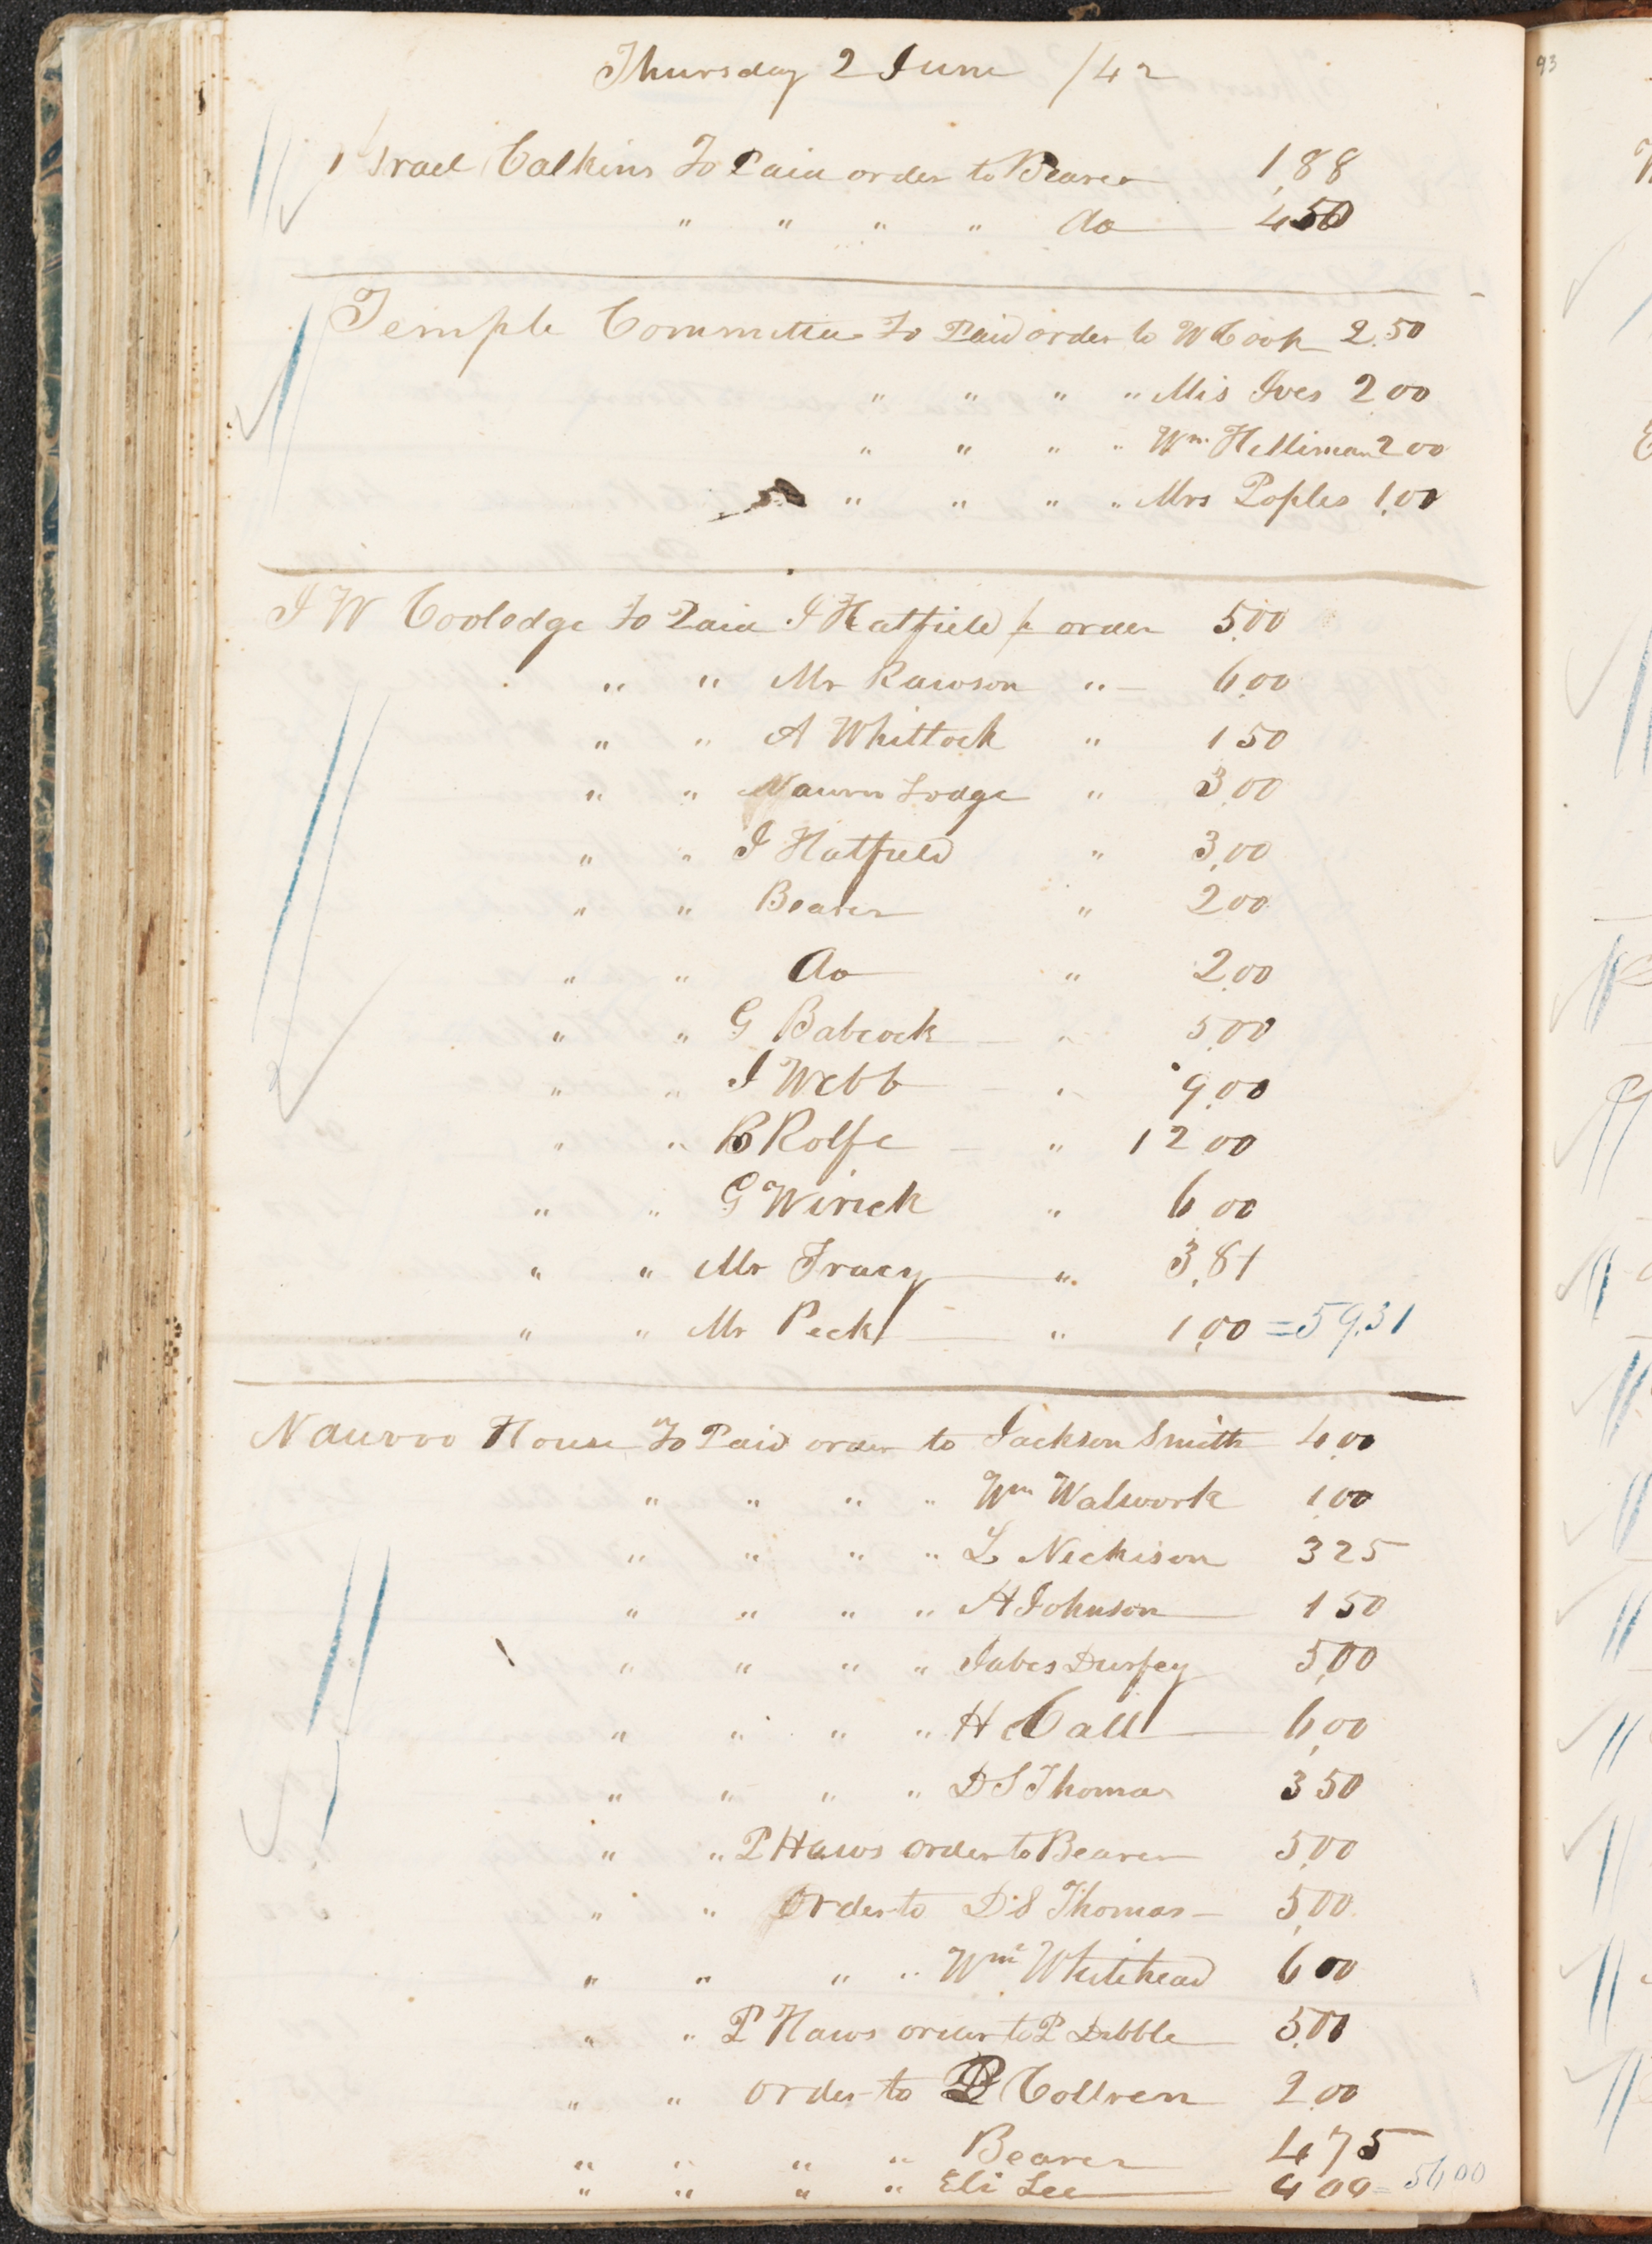 Thursday 2 June /42
Israel Calkins To Paid order to Bearer 1,88
" " " " do 450
Temple Committee To Paid order to W Cook 2.50
" " " " Mis Ives 2 00
" " " " Wm. Helliman 2 00
" " " " Mrs Poples 1,00
J W Coolodge To Paid J Hatfield pr order 5,00
" " Mr Rawson " 6,00
" " A Whittock " 1 50
" " Nauvoo Lodge " 3,00
" " J Hatfield " 3,00
" " Bearer " 2 00
" " do " 2,00
" " G Babcock " 5,00
" " J Webb " 9,00
" " B Rolfe " 12 00
" " G Wirick " 6 00
" " Mr Tracy " 3,81
" " Mr Peck " 1,00 =59,31
Nauvoo House To Paid order to Jackson Smith 4,00
" " " " Wm Walwork 1,00
" " " " L Nickison 3 25
" " " " A Johnson 1 50
" " " " Jabes Durfey 5,00
" " " " H Call 6,00
" " " " D S Thomas 3 50
" " P Haws order to Bearer 5,00
" " Order to D S Thomas 5,00
" " " " Wm Whitehead 6 00
" " P Haws order to P Dibble 5,00
" " order to Coltren 2,00
" " " " Bearer 4 75
" " " " Eli Lee 4 00 = 56,00
93